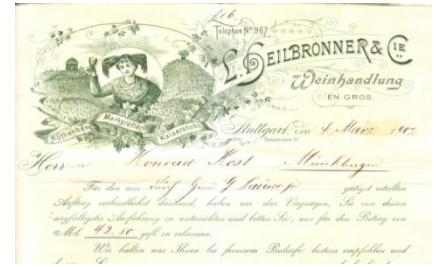 216.
Telephon No 967.
L. HEILBRONNER & CIE
Weinhandlung
EN GROS
Röthenberg
Markgräfler
Kaiserstuhl
Stuttgart, den 4. März 190
Herrn Konrad Kost
Für den uns durch Herrn G gütigst erteilten
Auftrag verbindlichst dankend, haben wir das Vergnügen, Sie von dessen
sorgfältigster Ausführung zu unterrichten und bitten Sie, uns für den Betrag von
Mk. 42.50 gefl. zu erkennen.
Wir halten uns Ihnen bei fernerem Bedarfe bestens empfohlen und